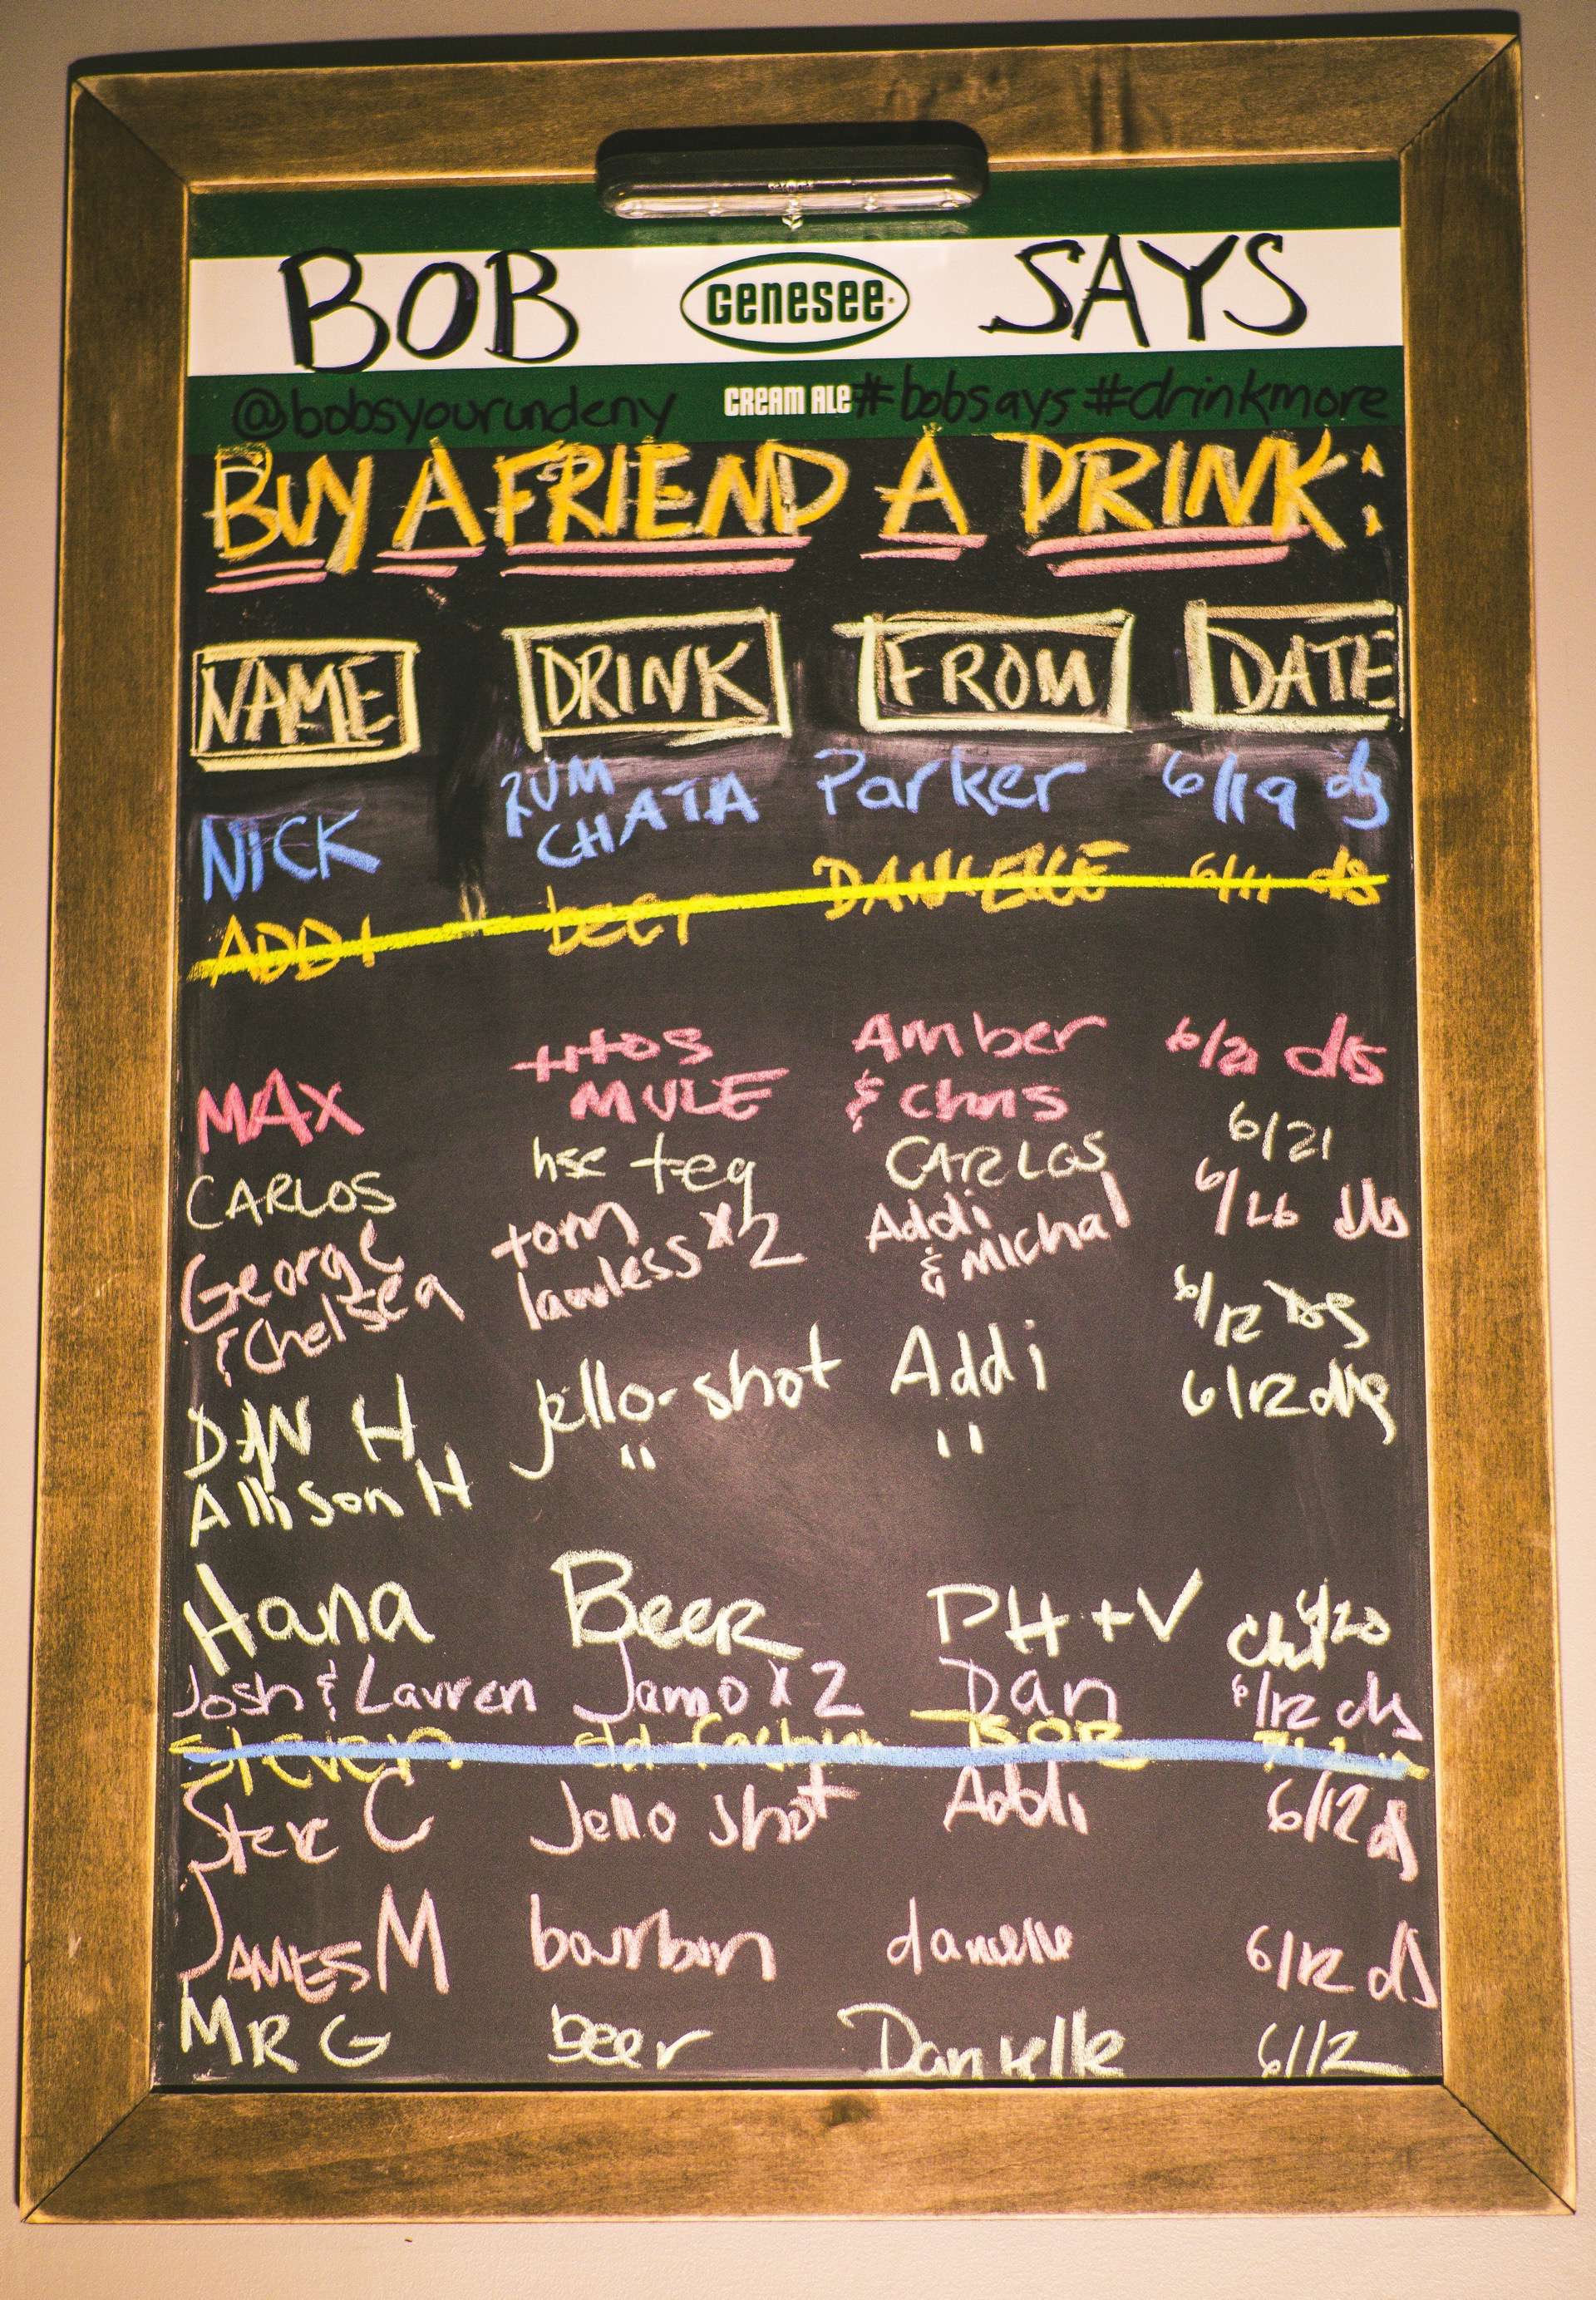 BOB GENESEE SAYS
@bobsyourundeny CREAM ALE #bobsays #drinkmore
BUY A FRIEND A DRINK:
NAME DRINK FROM DATE
NICK RUM CHATA Parker 6/19
ADDI beer DANIELLE 6/11 ds
MAX titos MULE Amber & Chris 6/21 ds
CARLOS hse teq CARLOS 6/21
George & Chelsea tom lawless x2 Addi & Michal 6/26
DAN H jello-shot Addi 6/12
Allison H " " 6/12
Hana Beer PH + V
Josh & Lauren Jamo x 2 Dan 6/12 ds
Steven old fashion
Steve C Jello shot Addi 6/12 ds
JAMES M bourbon danielle 6/12 ds
MR G beer Danielle 6/12